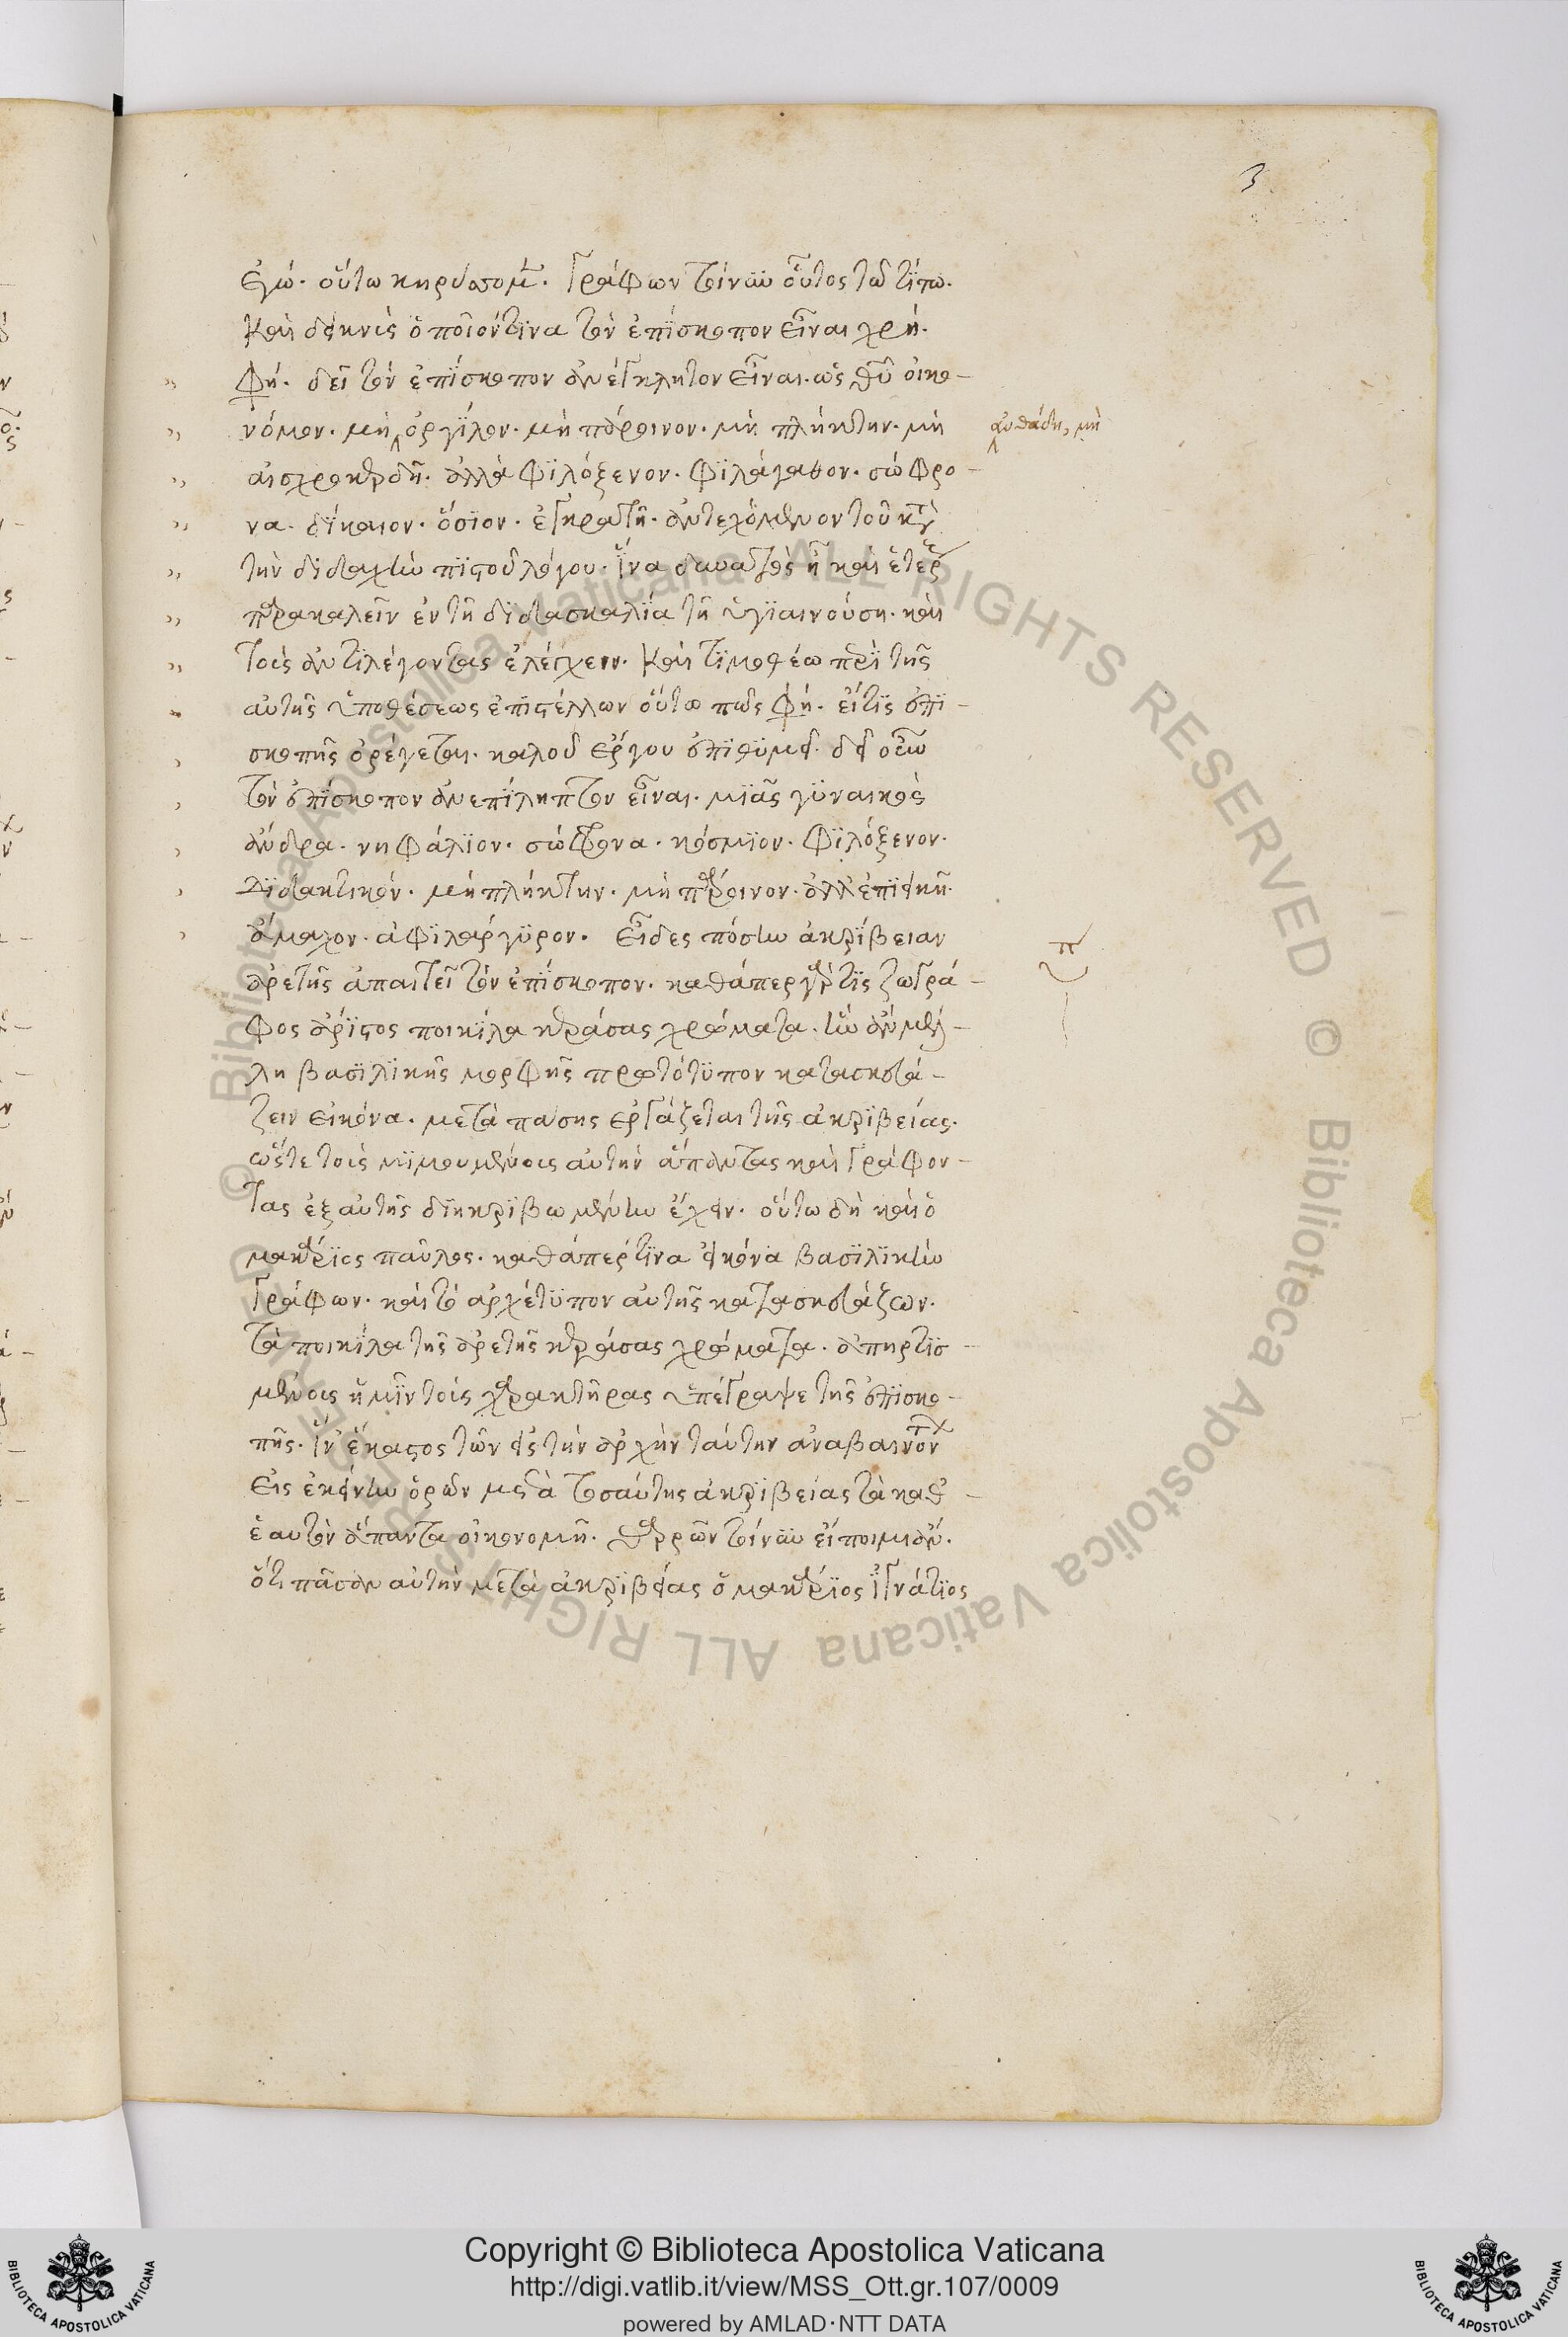 3
ἐγώ. οὕτω κηρύσσομεν. Γράφων τοίνυν οὗτος τῶ τίτω.
Καὶ δεικνὺς ὁποῖόν τινα τὸν ἐπίσκοπον εἶναι χρή.
φησί. δεῖ τὸν ἐπίσκοπον ἀνέγκλητον εἶναι. ὡς θῦ οἰκο-
νόμον. μὴ ὀργίλον. μὴ πάροινον. μὴ πλήκτην. μὴ
αὐθάδη, μὴ
αἰσχροκερδῆ. ἀλλὰ φιλόξενον. φιλάγαθον. σώφρο-
να. δίκαιον. ὅσιον. ἐγκρατῆ. ἀντεχόμενον τοῦ κατὰ
τὴν διδαχὴν πιστοῦ λόγου. ἵνα δυνατὸς ἦ καὶ ἑτέρους
παρακαλεῖν ἐν τῆ διδασκαλία τῆ ὑγιαινούση. καὶ
τοὺς ἀντιλέγοντας ἐλέγχειν. Καὶ τιμοθέω περὶ τῆς
αὐτῆς ὑποθέσεως ἐπιστέλλων οὕτω πώς φησί. εἴ τις ἐπι-
σκοπῆς ὀρέγεται. καλοῦ ἔργου ἐπιθυμεῖ. δεῖ οὖν
τὸν ἐπίσκοπον ἀνεπίληπτον εἶναι. μιᾶς γυναικὸς
ἄνδρα. νηφάλιον. σώφρονα. κόσμιον. φιλόξενον.
Διδακτικόν. μὴ πλήκτην. μὴ πάροινον. ἀλλ' ἐπιεικῆ.
ἄμαχον. ἀφιλάργυρον. Εἶδες πόσην ἀκρίβειαν
ἀρετῆς ἀπαιτεῖ τὸν ἐπίσκοπον. καθάπερ γάρ τις ζωγρά-
φος ἄριστος ποικίλα κεράσας χρώματα. ἣν ἂν μέλ-
λη βασιλικῆς μορφῆς πρωτότυπον κατασκευά-
ζειν εἰκόνα. μετὰ πάσης ἐργάζεται τῆς ἀκριβείας.
ὥστε τοὺς μιμουμένους αὐτὴν ἅπαντας καὶ γράφον-
τας ἐξ αὐτῆς διηκριβωμένην ἔχειν. οὕτω δὴ καὶ ὁ
μακάριος παῦλος. καθάπερ τινὰ εἰκόνα βασιλικὴν
γράφων. καὶ τὸ ἀρχέτυπον αὐτῆς κατασκευάζων.
τὰ ποικίλα τῆς ἀρετῆς κεράσας χρώματα. ἀπηρτισ-
μένους ἡμῖν τοὺς χαρακτῆρας ὑπέγραψε τῆς ἐπισκο-
πῆς. ἵν' ἕκαστος τῶν εἰς τὴν ἀρχὴν ταύτην ἀναβαινόντων
εἰς ἐκείνην ὁρῶν μετὰ τοσαύτης ἀκριβείας τὰ καθ'
ἑαυτὸν ἅπαντα οἰκονομῆ. Θαρρῶν τοίνυν εἴποιμι ἄν.
ὅτι πᾶσαν αὐτὴν μετὰ ἀκριβείας ὁ μακάριος ἰγνάτιος
© Biblioteca Apostolica Vaticana ALL RIGHTS RESERVED © Biblioteca Apostolica Vaticana ALL RIGHTS RESERVED
Copyright © Biblioteca Apostolica Vaticana
http://digi.vatlib.it/view/MSS_Ott.gr.107/0009
powered by AMLAD·NTT DATA
BIBLIOTECA APOSTOLICA VATICANA
BIBLIOTECA APOSTOLICA VATICANA